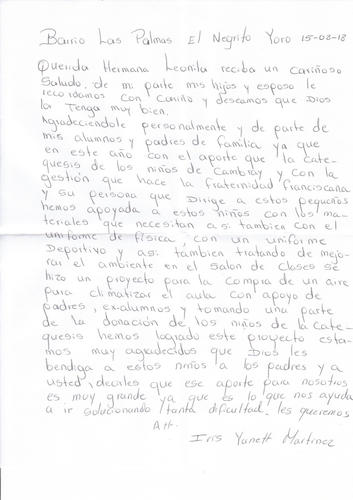 Barrio Las Palmas El Negrito Yoro 15-03-18
Querida Hermana Leonila reciba un cariñoso
Saludo, de mi parte mis hijos y esposo le
recordamos con Cariño y deseamos que Dios
la Tenga muy bien.
Agradeciendole personalmente y de parte de
mis alumnos y padres de familia ya que
en este año con el aporte que la cate-
quesis de los niños de Cambray y con la
gestión que hace la fraternidad franciscana
y su persona que Dirige a estos pequeños
hemos apoyado a estos niños con los ma-
teriales que necesitan asi tambien con el
uniforme de física, con un uniforme
Deportivo y asi tambien tratando de mejo-
rar el ambiente en el salon de clases se
hizo un proyecto para la compra de un aire
para climatizar el aula con apoyo de
padres, ex-alumnos y tomando una parte
de la donación de los niños de la Cate-
quesis hemos logrado este proyecto esta-
mos muy agradecidos que Dios les
bendiga a estos niños a los padres y a
usted, decirles que ese aporte para nosotros
es muy grande ya que es lo que nos ayuda
a ir solucionando tanta dificultad. les queremos
Att.
Iris Yanett Martinez